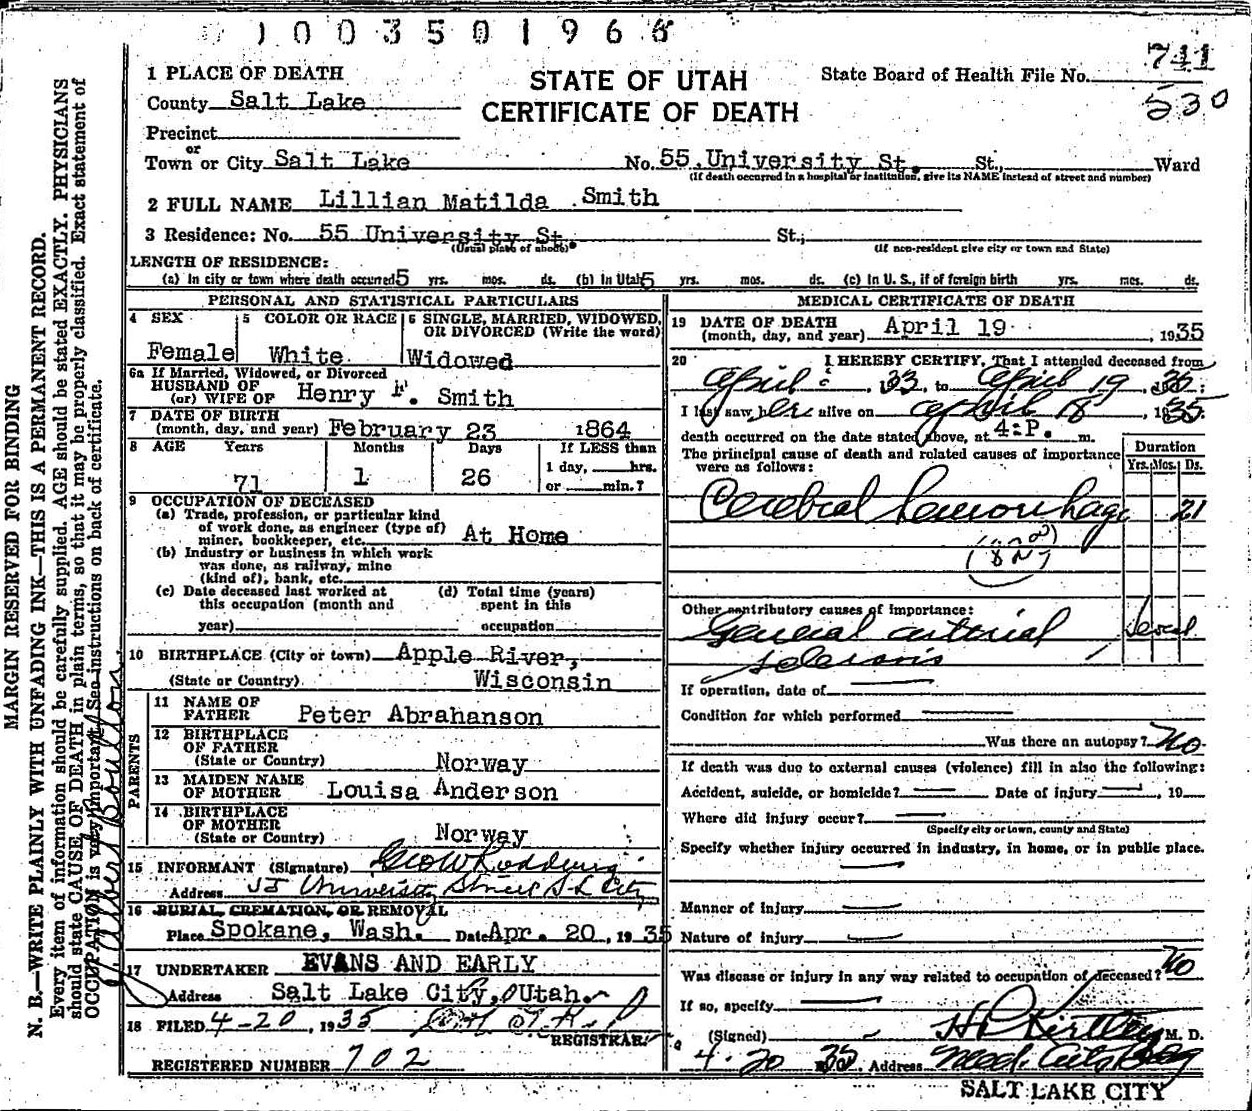 1003501966
741
530
STATE OF UTAH
CERTIFICATE OF DEATH
State Board of Health File No.
1 PLACE OF DEATH
County Salt Lake
Precinct
or
Town or City Salt Lake No. 55 University St. St., Ward
(If death occurred in a hospital or institution, give its NAME instead of street and number)
2 FULL NAME Lillian Matilda Smith
3 Residence: No. 55 University St. St.,
(Usual place of abode) (If non-resident give city or town and State)
LENGTH OF RESIDENCE:
(a) In city or town where death occurred 5 yrs. mos. ds. (b) In Utah 5 yrs. mos. ds. (c) In U. S., if of foreign birth yrs. mos. ds.
PERSONAL AND STATISTICAL PARTICULARS
4 SEX Female
5 COLOR OR RACE White
6 SINGLE, MARRIED, WIDOWED, OR DIVORCED (Write the word) Widowed
6a If Married, Widowed, or Divorced
HUSBAND OF
(or) WIFE OF Henry F. Smith
7 DATE OF BIRTH
(month, day, and year) February 23 1864
8 AGE Years Months Days If LESS than
71 1 26 1 day, hrs.
or min.?
9 OCCUPATION OF DECEASED
(a) Trade, profession, or particular kind
of work done, as engineer (type of)
miner, bookkeeper, etc. At Home
(b) Industry or business in which work
was done, as railway, mine
(kind of), bank, etc.
(c) Date deceased last worked at
this occupation (month and
year)
(d) Total time (years)
spent in this
occupation
10 BIRTHPLACE (City or town) Apple River,
(State or Country) Wisconsin
PARENTS
11 NAME OF
FATHER Peter Abrahanson
12 BIRTHPLACE
OF FATHER
(State or Country) Norway
13 MAIDEN NAME
OF MOTHER Louisa Anderson
14 BIRTHPLACE
OF MOTHER
(State or Country) Norway
15 INFORMANT (Signature) Geo W
Address 55 University Street S L City
16 BURIAL, CREMATION, OR REMOVAL
Place Spokane, Wash. Date Apr. 20, 1935
17 UNDERTAKER EVANS AND EARLY
Address Salt Lake City, Utah.
18 FILED 4-20, 1935
REGISTRAR
REGISTERED NUMBER 702
MEDICAL CERTIFICATE OF DEATH
19 DATE OF DEATH
(month, day, and year) April 19 , 1935
20 I HEREBY CERTIFY, That I attended deceased from
April , 33, to April 19 , 1935
I last saw her alive on April 18 , 1935
death occurred on the date stated above, at 4:P. m.
The principal cause of death and related causes of importance
were as follows:
Duration
Yrs. Mos. Ds.
Cerebral hemorrhage 21
Other contributory causes of importance:
General arterial
sclerosis
If operation, date of
Condition for which performed
Was there an autopsy? No
If death was due to external causes (violence) fill in also the following:
Accident, suicide, or homicide? Date of injury , 19
Where did injury occur?
(Specify city or town, county and State)
Specify whether injury occurred in industry, in home, or in public place.
Manner of injury
Nature of injury
Was disease or injury in any way related to occupation of deceased? No
If so, specify
(Signed) H P Kirtley M. D.
4-20 35 Address Med. Arts Bldg
SALT LAKE CITY
MARGIN RESERVED FOR BINDING
N. B.—WRITE PLAINLY WITH UNFADING INK—THIS IS A PERMANENT RECORD.
Every item of information should be carefully supplied. AGE should be stated EXACTLY. PHYSICIANS
should state CAUSE OF DEATH in plain terms, so that it may be properly classified. Exact statement of
OCCUPATION is very important. See instructions on back of certificate.